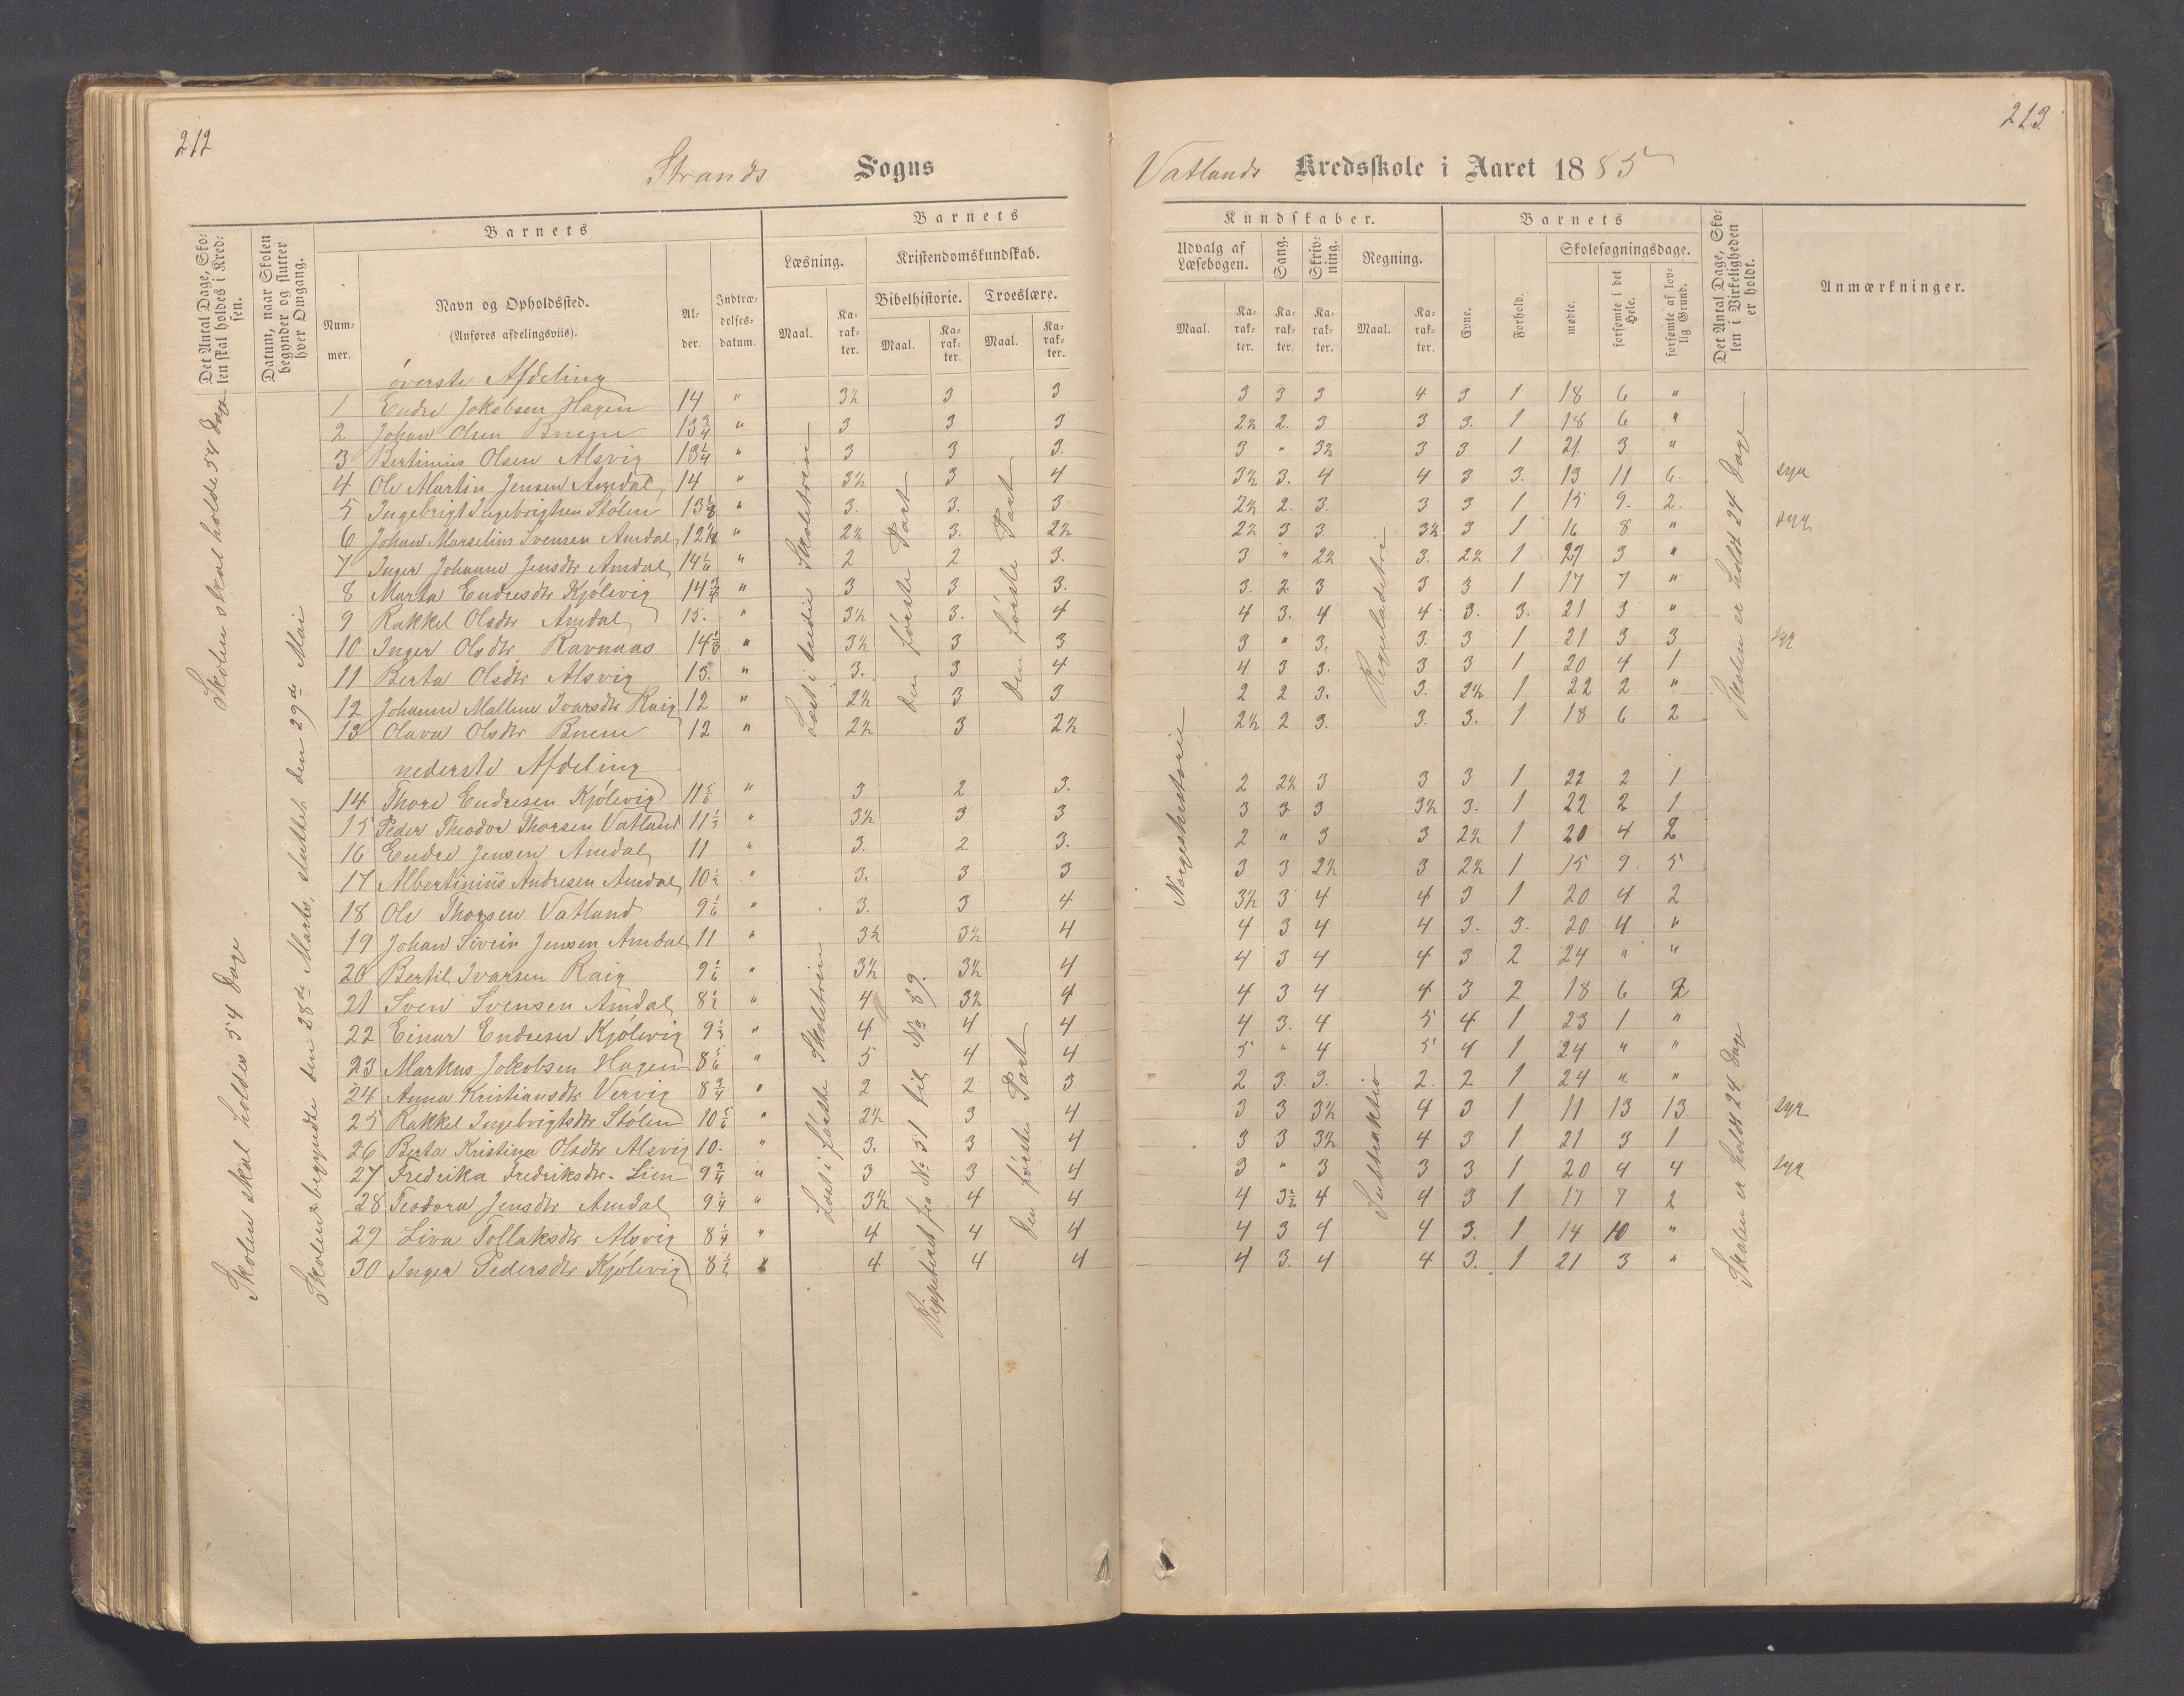 212
213
Strands Sogns
Vatlands Kredsskole i Aaret 1885
Det Antal Dage, Skolen skal holdes i Kredsen.
Datum, naar Skolen begynder og slutter hver Omgang.
Barnets
Nummer.
Navn og Opholdssted.
(Anføres afdelingsviis).
Alder.
Indtrædelsesdatum.
Barnets
Læsning.
Maal.
Karakter.
Kristendomskundskab.
Bibelhistorie.
Maal.
Karakter.
Troeslære.
Maal.
Karakter.
Kundskaber.
Udvalg af Læsebogen.
Maal.
Karakter.
Sang.
Karakter.
Skrivning.
Karakter.
Regning.
Maal.
Karakter.
Barnets
Evne.
Forhold.
Skolesøgningsdage.
mødte.
forsømte i det Hele.
forsømte af lovlig Grund.
Det Antal Dage, Skolen i Virkeligheden er holdt.
Anmærkninger.
Skolen skal holdes 54 dage
Skolen skal holdes 54 dage
Skolen begyndte den 28de Marts, sluttet den 29de Mai
Læst i tredie Skoletrin
den første Part
den første Part
Læst i første Skoletrin
Reppeteret fra No 51 til No 89.
den første Part
Norgeshistorie
Reguladetri
Subtraktion
Skolen er holdt 24 Dage
Skolen er holdt 24 dage
øverste Afdeling
1 Endre Jakobsen Hagen 14 " 3½ 3 3 3 3 3 4 3 1 18 6 "
2 Johan Olsen Bueme 13¾ " 3 3 3 2½ 2. 3 3 3. 1 18 6 "
3 Bertinius Olsen Alsvig 13¼ " 3 3 3. 3 " 3½ 3 3 1 21. 3 "
4 Ole Martin Jensen Amdal 14 " 3½ 3 4 3½ 3. 4 4 3 3. 13 11 6. syg
5 Ingebrigt Ingebrigtsen Stølen 13⅛ " 3. 3. 3 2½ 2. 3. 3 3 1 15 9. 2.
6 Johan Marselius Svensen Amdal 12¼ " 2½ 3. 2½ 2½ 3 3 3½ 3 1 16 8 " syg
7 Inger Johanne Jensdtr Amdal 14⅙ " 2 2 3. 3 " 2½ 3. 2½ 1 21 3 "
8 Marta Endresdtr Kjølevig 14¾ " 3 3 3. 3. 2 3 3 3 1 17 7 "
9 Rakkel Olsdtr Amdal 15. " 3½ 3. 4 4 3. 4 4 3. 3. 21 3 "
10 Inger Olsdtr Ravnaas 14⅓ " 3½ 3 3 3 " 3. 3. 3 1 21 3 3 syg
11 Berta Olsdtr Alsvig 13. " 3. 3 4 4 3 3. 3 3 1 20 4 1
12 Johanne Malline Ivarsdtr Raig 12 " 2½ 3 3 2 2 3. 3. 2½ 1 22 2 "
13 Olava Olsdtr Bueme 12 " 2½ 3 2½ 2½ 2 3. 3. 3. 1 18 6 2
nederste Afdeling
14 Thore Endresen Kjølevig 11⅚ " 3 2 3. 2 2½ 3 3 3 1 22 2 1
15 Peder Theodor Thorsen Vatland 11⅓ " 3½ 3 3 3 3 3 3½ 3. 1 22 2 1
16 Endre Jensen Amdal 11 " 3. 2 3. 2 " 3 3 2½ 1 20 4 2
17 Albertinius Andresen Amdal 10½ " 3. 3 3 3 3 2½ 3 2½ 1 15 9. 5
18 Ole Thorsen Vatland 9⅙ " 3. 3 4 3½ 3 4 4 3 1 20 4 2
19 Johan Sivein Jensen Amdal 11 " 3½ 3½ 4 4 3 4 4 3. 3. 20 4 "
20 Bertil Ivarsen Raig 9⅙ " 3½ 3½ 4 4 3 4 4 3 2 24 " "
21 Sven Svensen Amdal 8½ " 4 3½ 4 4 3 4 4 3 2 18 6 2
22 Einar Endresen Kjølevig 9⅓ " 4 4 4 4 3. 4 5 4 1 23 1 "
23 Markus Jokobsen Hagen 8⅚ " 5 4 4 5 " 4 5 4 1 24 " "
24 Anna Kristiansdtr Vervig 8¾ " 2 2 3 2 3. 3. 2. 2 1 24 " "
25 Rakkel Ingebrigtsdtr Stølen 10⅚ " 2½ 3 4 3 3 3½ 4 3 1 11 13 13 syg
26 Berta Kristina Olsdtr Alsvig 10. " 3. 3 4 3 3 3½ 4 3 1 21 3 1
27 Fredrika Fredriksdtr. Lien 9¾ " 3 3 4 3 " 3 3 3 1 20 4 4 syg
28 Teodora Jensdtr Amdal 9¼ " 3½ 4 4 4 3½ 4 4 3 1 17 7 2
29 Liva Tollaksdtr Alsvig 8¼ " 4 4 4 4 3 4 4 3. 1 14 10 "
30 Inger Pedersdtr Kjølevig 8½ " 4 4 4 4 3. 4 4 3. 1 21 3 "